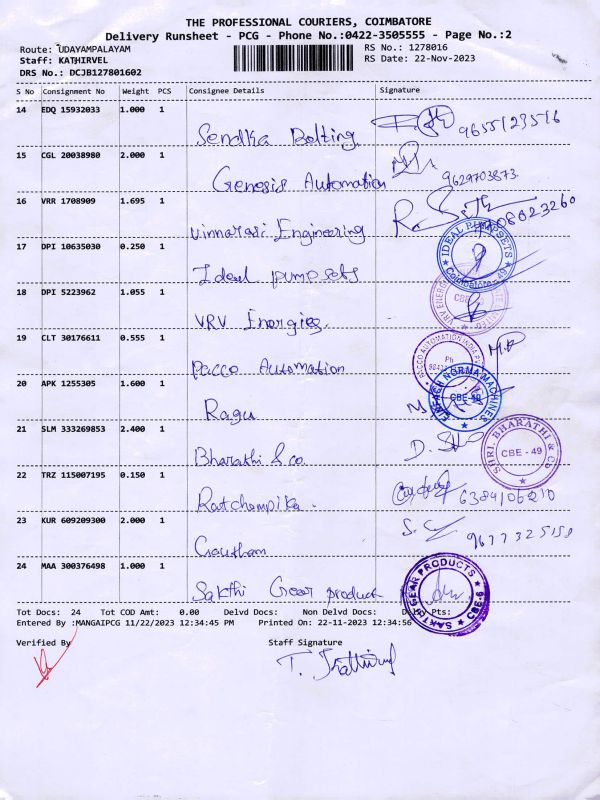 THE PROFESSIONAL COURIERS, COIMBATORE
Delivery Runsheet - PCG - Phone No.:0422-3505555 - Page No.:2
Route: UDAYAMPALAYAM RS No.: 1278016
Staff: KATHIRVEL RS Date: 22-Nov-2023
DRS No.: DCJB127801602
S No Consignment No Weight PCS Consignee Details Signature
14 EDQ 15932033 1.000 1
Sendka Bolting 9655123516
15 CGL 20038980 2.000 1
Genesis Automation 9629703873
16 VRR 1708909 1.695 1
Vinnarasi Engineering
17 DPI 10635030 0.250 1
Ideal pump sets IDEAL PUMPSETS Coimbatore - 49
18 DPI 5223962 1.055 1
VRV Energies CBE
19 CLT 30176611 0.555 1
Pacco Automation PACCO AUTOMATION M.P
20 APK 1255305 1.600 1
Ragu NORMA MACHINES CBE-49
21 SLM 333269853 2.400 1
Bharathi & co. SHRI. BHARATHI & Co CBE - 49
22 TRZ 115007195 0.150 1
Ratchampika. 6384106210
23 KUR 609209300 2.000 1
Goutham 9677325151
24 MAA 300376498 1.000 1
Sakthi Gear product SAKTI GEAR PRODUCTS CBE-6
Tot Docs: 24 Tot COD Amt: 0.00 Delvd Docs: Non Delvd Docs: Pts:
Entered By :MANGAIPCG 11/22/2023 12:34:45 PM Printed On: 22-11-2023 12:34:56
Verified By Staff Signature